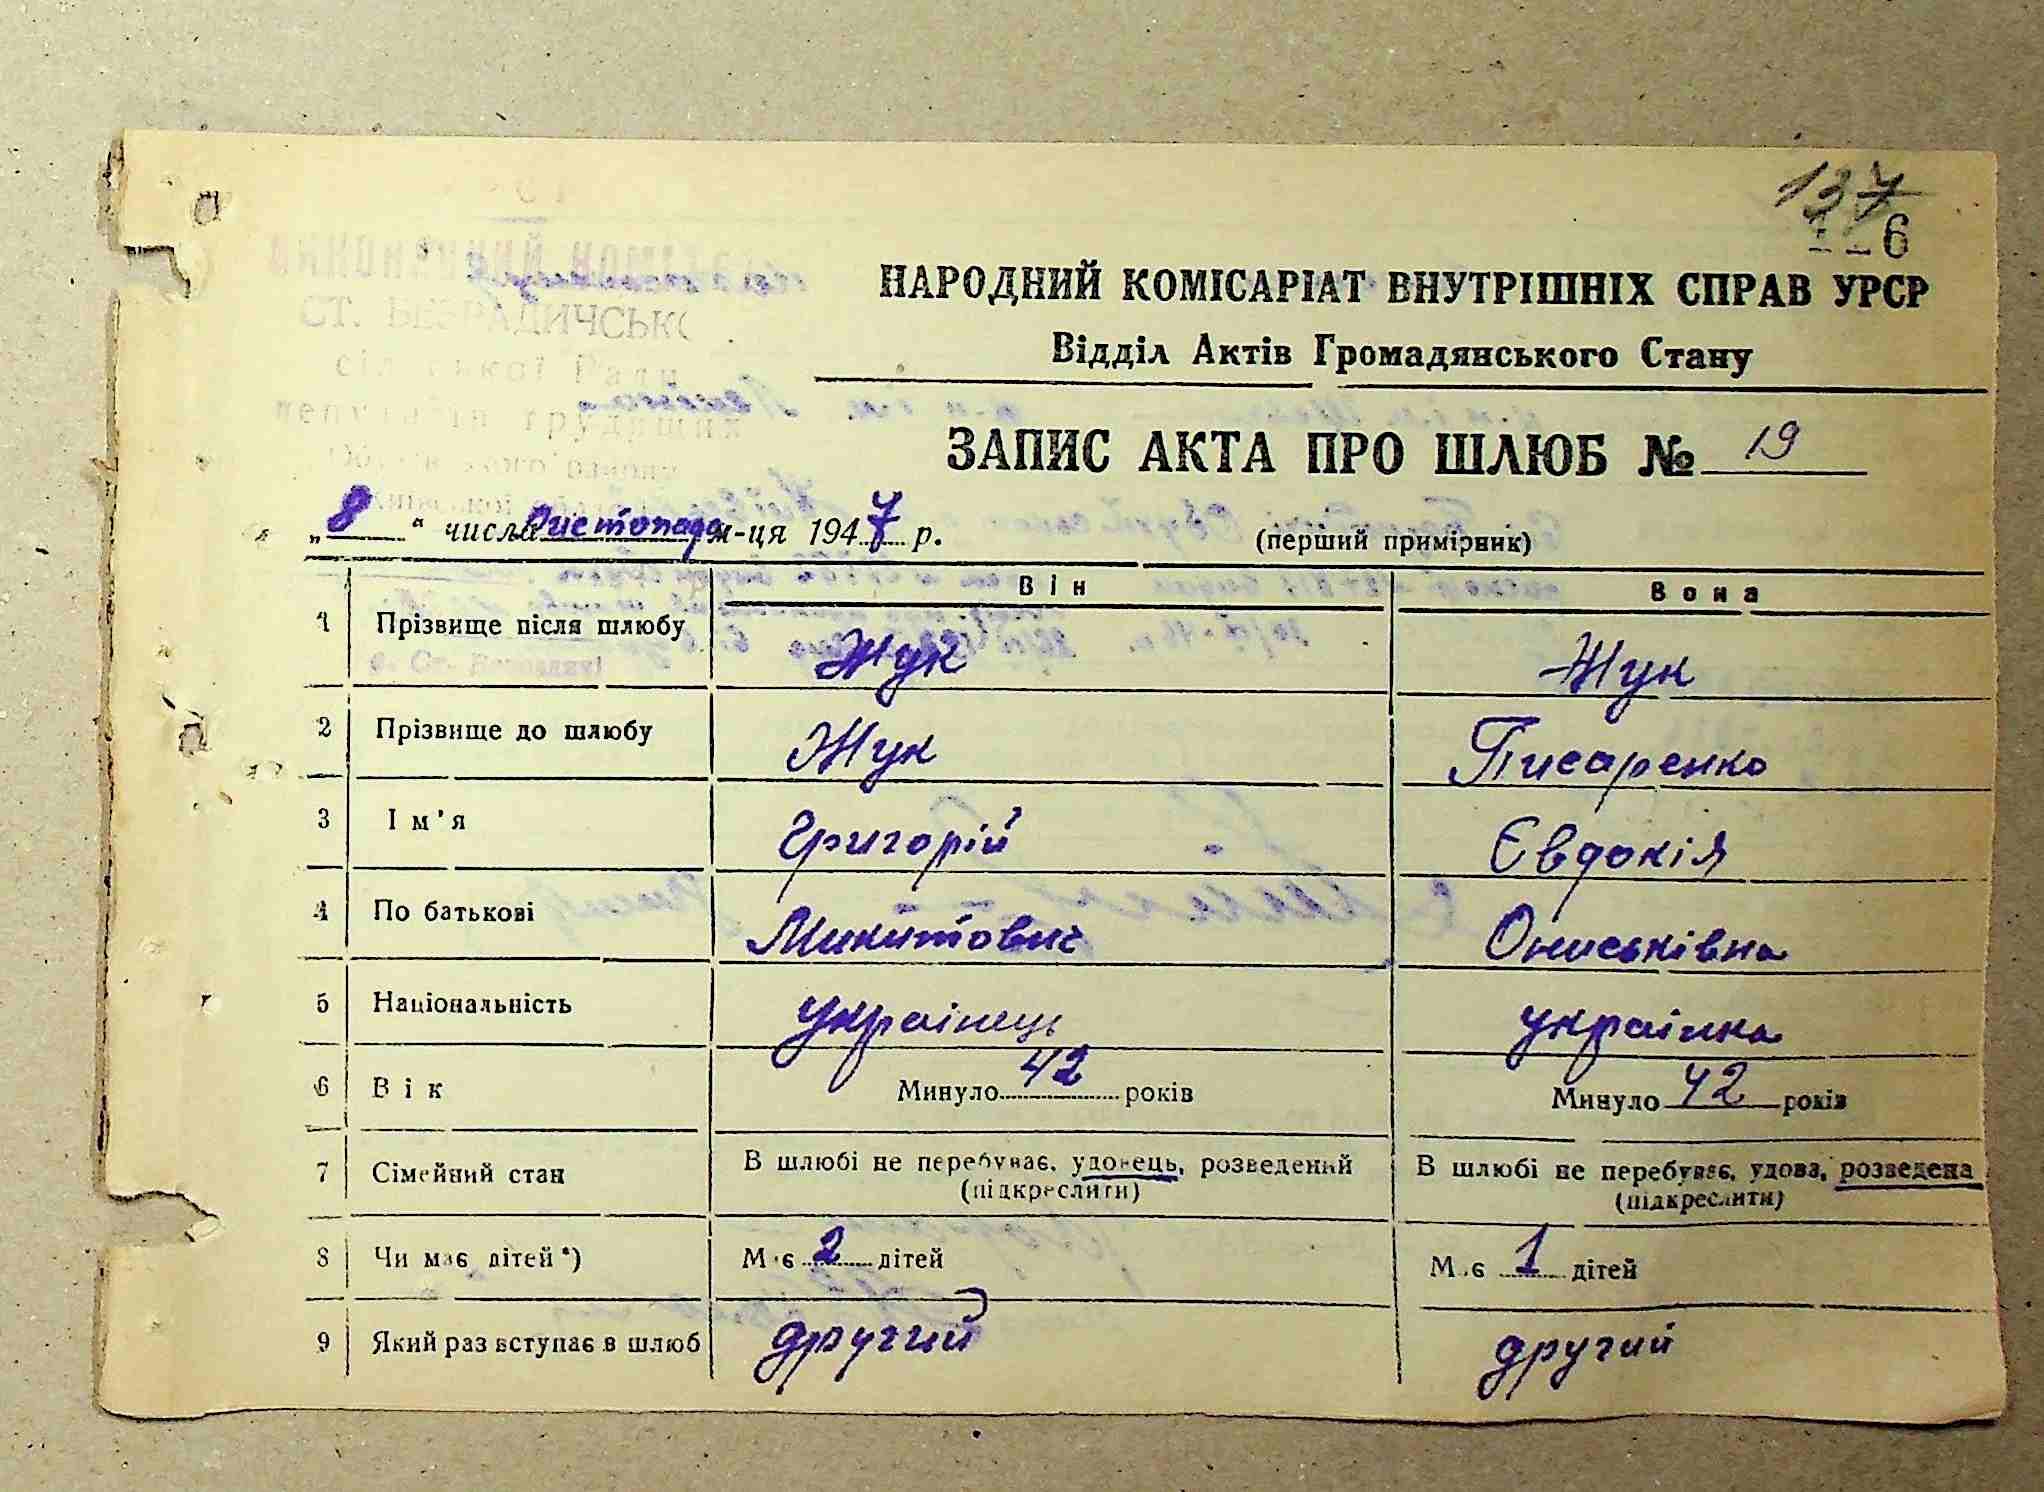 137
6
ВИКОНАВЧИЙ КОМІТЕТ
СТ. БЕЗРАДИЧСЬКО
сільської Ради
депутатів трудящих
НАРОДНИЙ КОМІСАРІАТ ВНУТРІШНІХ СПРАВ УРСР
Відділ Актів Громадянського Стану
ЗАПИС АКТА ПРО ШЛЮБ № 19
„8“ числа Листопада м-ця 1947 р. (перший примірник)
Він Вона
1 Прізвище після шлюбу Жук Жук
2 Прізвище до шлюбу Жук Писаренко
3 Ім'я Григорій Євдокія
4 По батькові Микитович Ониськівна
5 Національність українець українка
6 Вік Минуло 42 років Минуло 42 років
7 Сімейний стан В шлюбі не перебуває, удовець, розведений В шлюбі не перебуває, удова, розведена
(підкреслити) (підкреслити)
8 Чи має дітей*) Має 2 дітей Має 1 дітей
9 Який раз вступає в шлюб другий другий